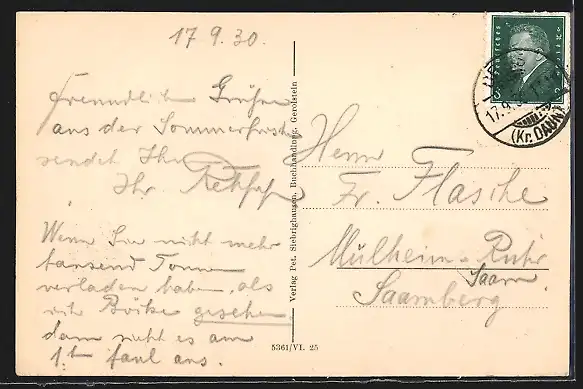 17.9.30.
Freundliche Grüße
aus der Sommerfrische
sendet Ihr
Ihr.
Wenn Sie nicht mehr
tausend Tonnen
verladen haben, als
wir gesehen
dann sieht es am
1ten faul aus.
Verlag Pet. Siebrighausen, Buchhandlung, Gerolstein
5361/VI. 25
Deutsches Reich
17.9.
(Kr. DAUN)
Herrn
Fr. Flasche
Mülheim a Ruhr
Saarn
Saarnberg